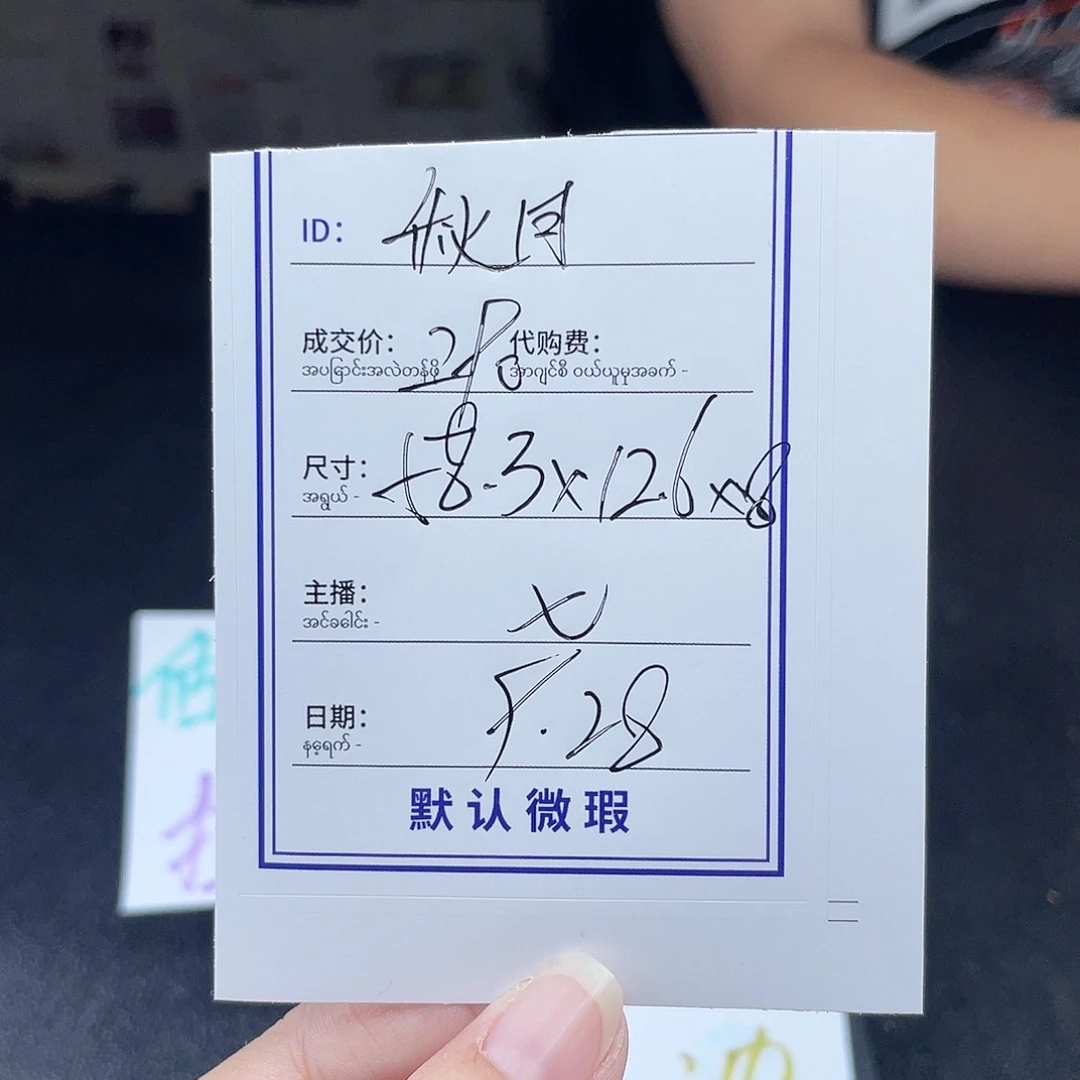 ID: 秋月
成交价: 280 代购费:
အပြောင်းအလဲတန်ဖိုး အာဂျင်စီ ဝယ်ယူမှုအခက် -
尺寸: 58.3×12.6×8
အရွယ် -
主播: 七
အင်ခေါင်း -
日期: 5.28
နေ့ရက် -
默认微瑕